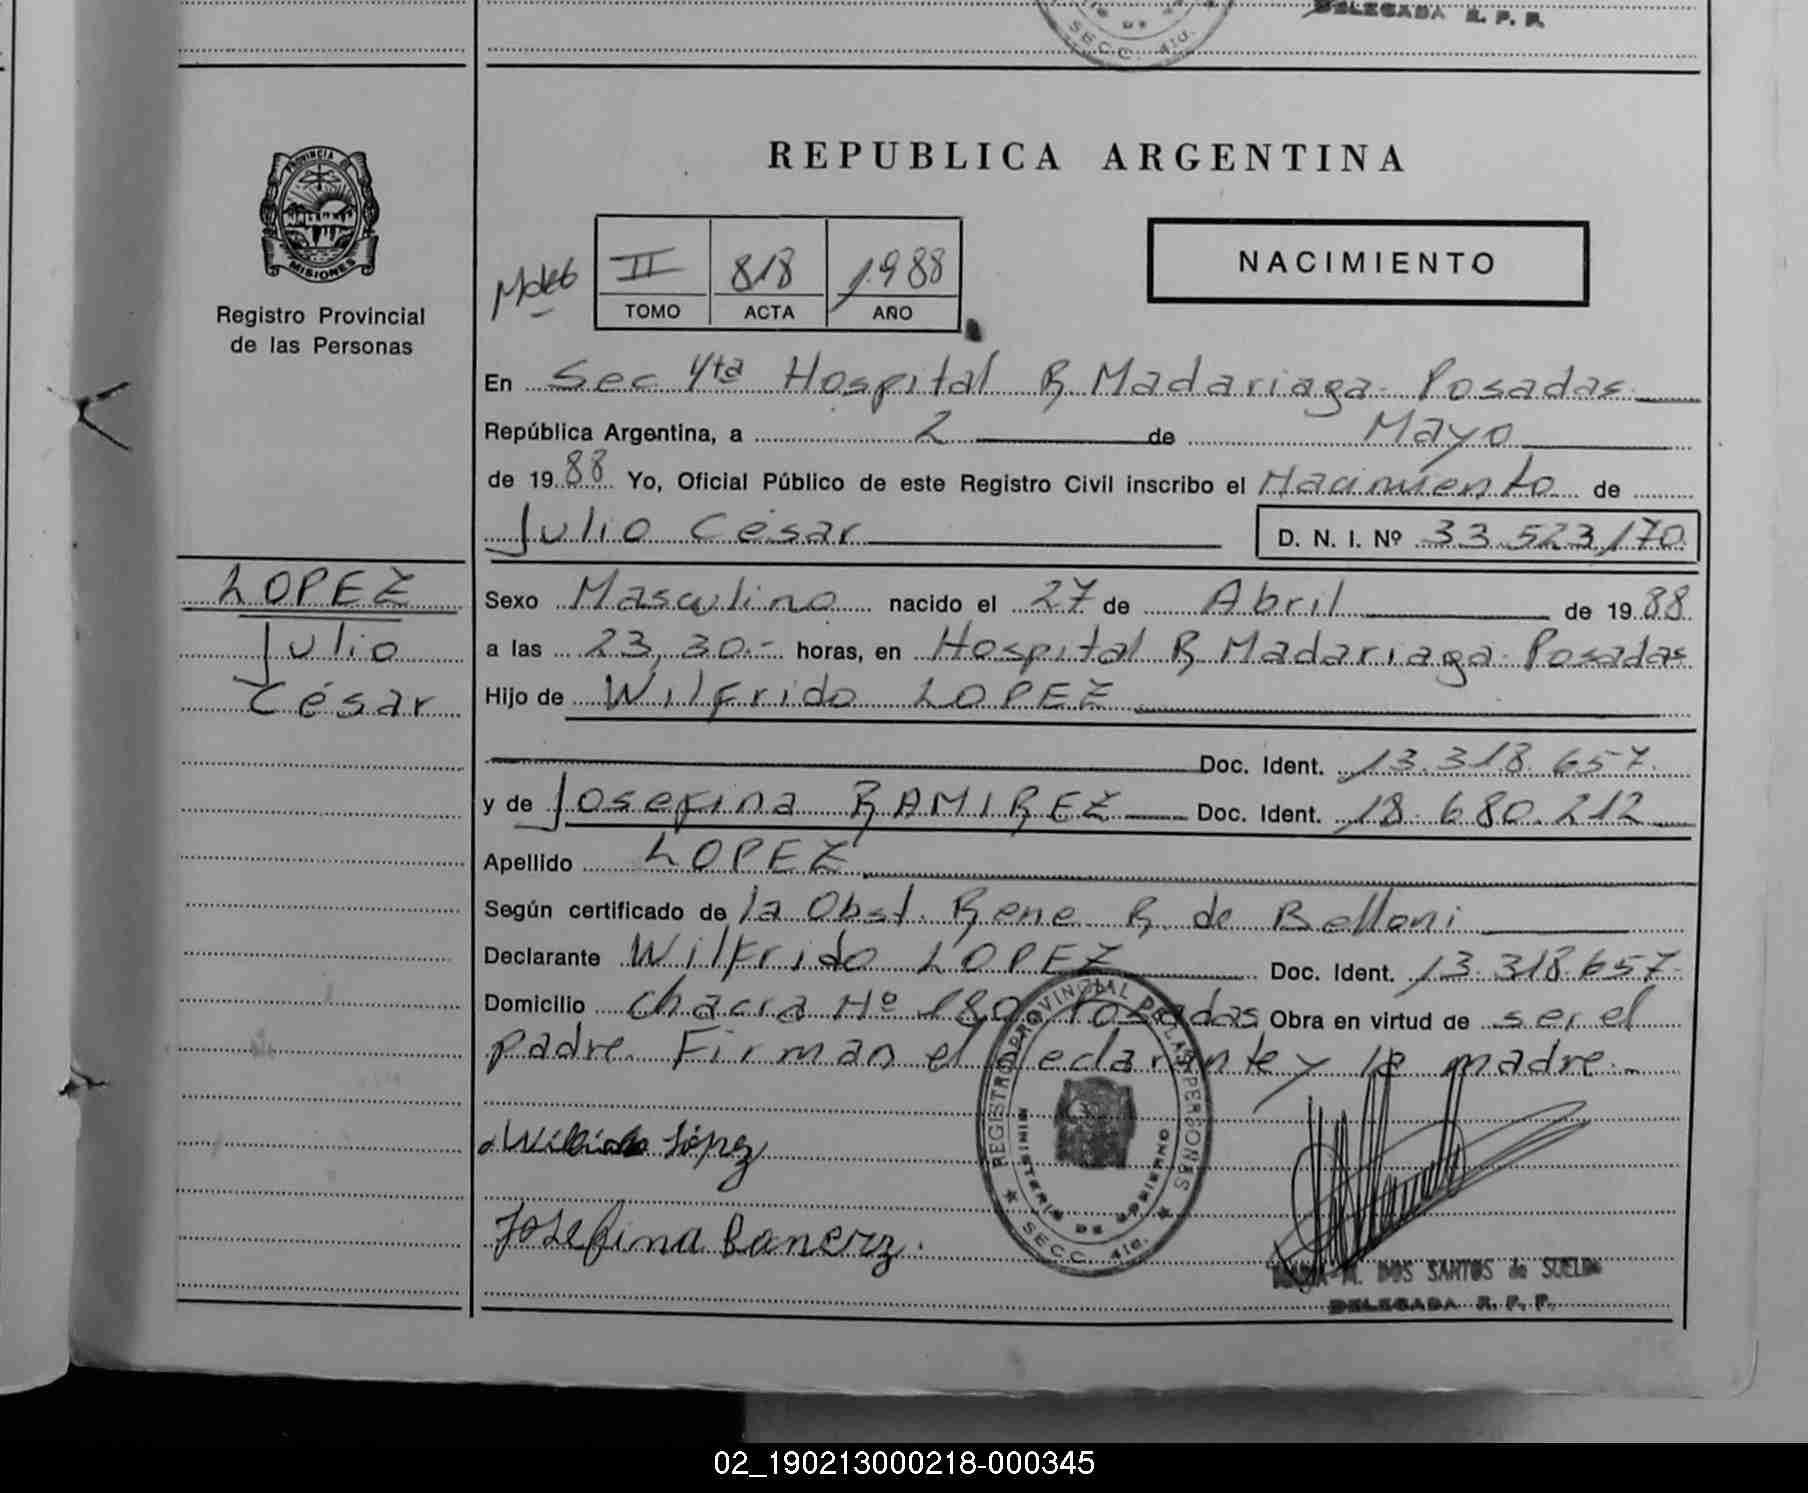 DELEGADA R. P. P.
SECC. 4ta.
PROVINCIA DE
MISIONES
Registro Provincial
de las Personas
REPUBLICA ARGENTINA
II 818 1988
TOMO ACTA AÑO
NACIMIENTO
En Sec 4ta Hospital R. Madariaga - Posadas
República Argentina, a 2 de Mayo
de 1988 Yo, Oficial Público de este Registro Civil inscribo el Nacimiento de
Julio César D. N. I. Nº 33.523.170
LOPEZ
Julio
César
Sexo Masculino nacido el 27 de Abril de 1988
a las 23,30.- horas, en Hospital R. Madariaga - Posadas
Hijo de Wilfrido LOPEZ
Doc. Ident. 13.318.657.
y de Josefina RAMIREZ Doc. Ident. 18.680.212
Apellido LOPEZ
Según certificado de la Obst. Rene R. de Belloni
Declarante Wilfrido LOPEZ Doc. Ident. 13.318.657-
Domicilio Chacra Nº 180 Posadas Obra en virtud de ser el
padre. Firman el declarante y la madre.-
REGISTRO PROVINCIAL DE LAS PERSONAS
MINISTERIO DE GOBIERNO
SECC. 4ta.
López
Josefina
M. DOS SANTOS de SUELDO
DELEGADA R. P. P.
02_190213000218-000345